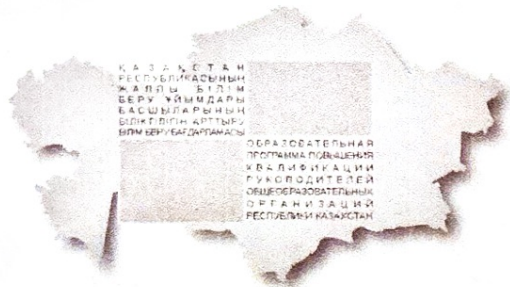 ҚАЗАҚСТАН
РЕСПУБЛИКАСЫНЫҢ
ЖАЛПЫ БІЛІМ
БЕРУ ҰЙЫМДАРЫ
БАСШЫЛАРЫНЫҢ
БІЛІКТІЛІГІН АРТТЫРУ
БІЛІМ БЕРУ БАҒДАРЛАМАСЫ
ОБРАЗОВАТЕЛЬНАЯ
ПРОГРАММА ПОВЫШЕНИЯ
КВАЛИФИКАЦИИ
РУКОВОДИТЕЛЕЙ
ОБЩЕОБРАЗОВАТЕЛЬНЫХ
ОРГАНИЗАЦИЙ
РЕСПУБЛИКИ КАЗАХСТАН